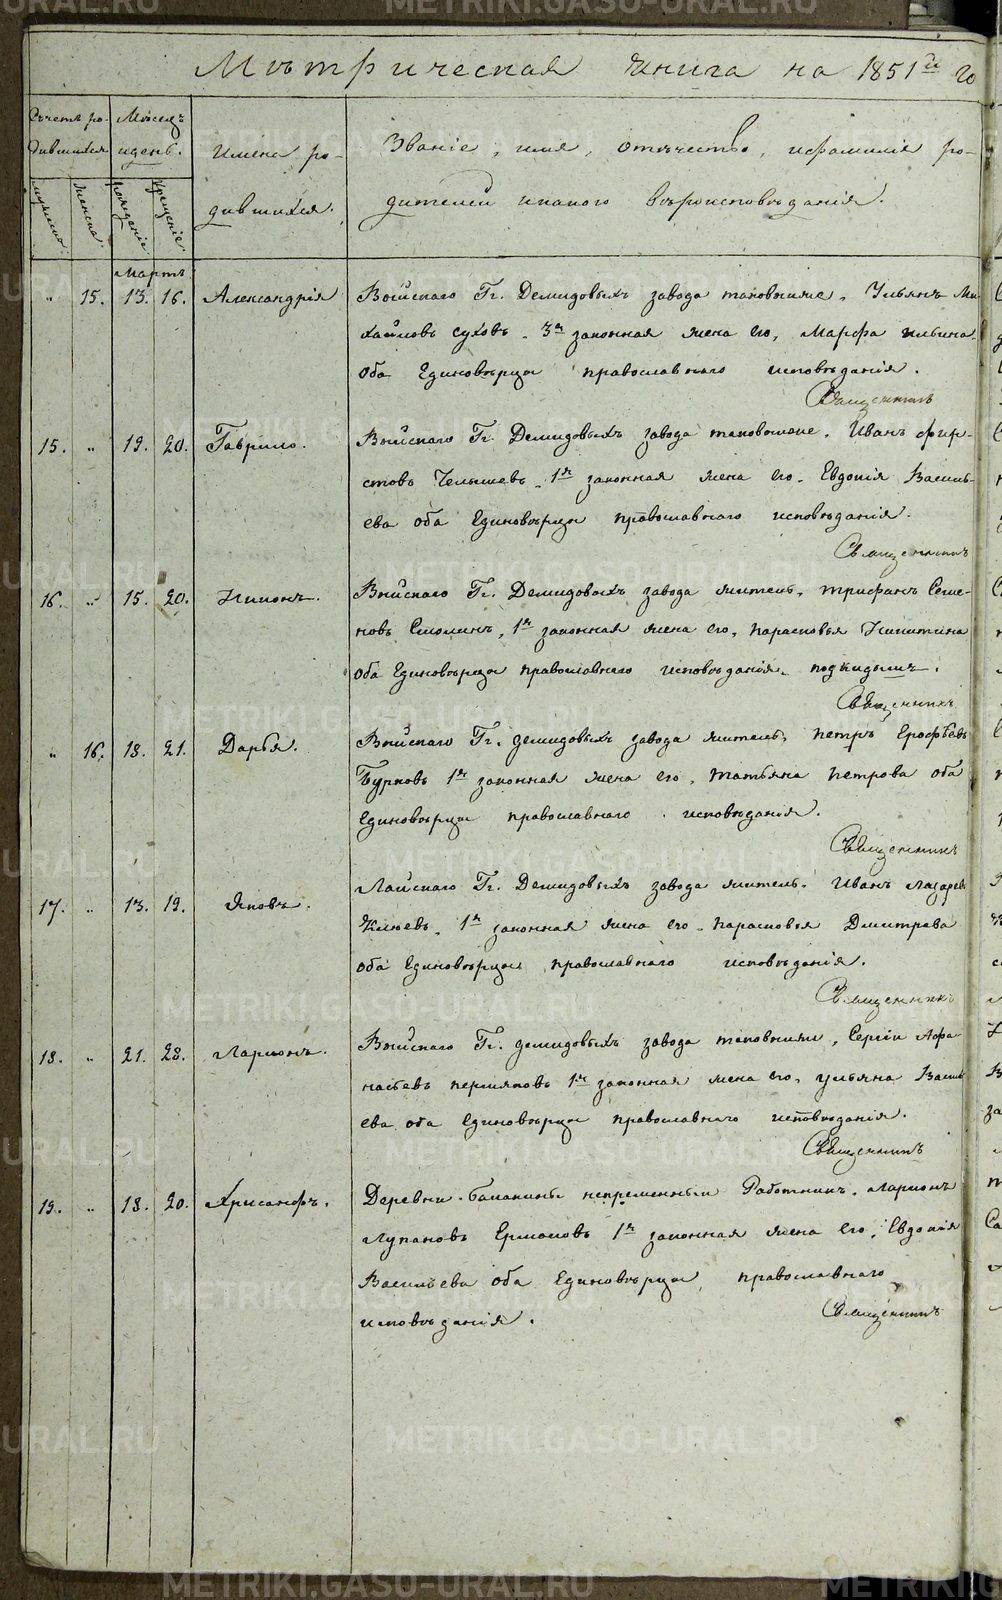 Мѣтрическая книга на 1851й го
Счетъ ро-
дившихся
Мѣсяцъ
и день.
Имена ро-
дившихся.
Званіе, имя, отѣчество, и фамилія ро-
дителей и какого вѣроисповѣданія.
мужеска.
женска.
рожденіе.
крещеніе.
Мартъ
" 15. 13. 16. Александрія
Выйскаго Гг. Демидовыхъ завода Ульянъ Ми-
хайловъ Суховъ. 3я законная жена его, Марфа Ильина.
оба Единовѣрцы православнаго исповѣданія.
Священникъ
15. " 19. 20. Гаврило.
Выйскаго Гг. Демидовыхъ завода Иванъ Фир-
стовъ Челышевъ. 1я законная жена его. Евдокія Василь-
ева оба Единовѣрцы православнаго исповѣданія.
Священникъ
16. " 15. 20. Никонъ.
Выйскаго Гг. Демидовыхъ завода житель, Трифанъ Семе-
новъ Смолинъ, 1я законная жена его, Парасковья Никитина
оба Единовѣрцы православнаго исповѣданія. подкидышъ.
Священникъ
" 16. 18. 21. Дарья.
Выйскаго Гг. Демидовыхъ завода житель, Петръ Ерофѣевъ
Бурковъ 1я законная жена его, Татьяна Петрова оба
Единовѣрцы православнаго исповѣданія.
Священникъ
17. " 13. 19. Яковъ.
Лайскаго Гг. Демидовыхъ завода житель. Иванъ Лазаревъ
Клюевъ. 1я законная жена его. Парасковья Дмитрева
оба Единовѣрцы православнаго исповѣданія.
Священникъ
18. " 21. 28. Ларионъ.
Выйскаго Гг. Демидовыхъ завода Сергіи Афа-
насьевъ Пермяковъ 1я законная жена его, Ульяна Василь
ева оба Единовѣрцы православнаго исповѣданія.
Священникъ
19. " 18. 20. Хрисанфъ.
Деревни Балакины непременный Работникъ. Ларионъ
Лупановъ Ермаковъ 1я законная жена Его, Евдокія
Васильева оба Единовѣрцы православнаго
исповѣданія.
Священникъ
METRIKI.GASO-URAL.RU